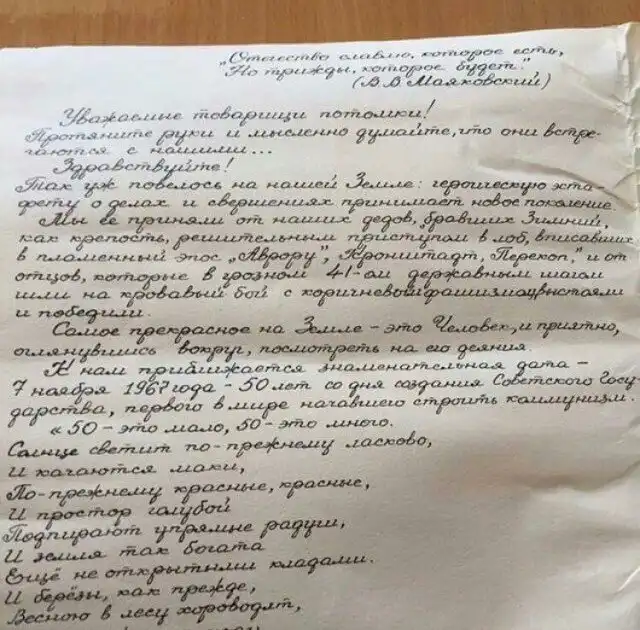 „Отечество славлю, которое есть,
Но трижды, которое будет."
(В.В. Маяковский)
Уважаемые товарищи потомки!
Протяните руки и мысленно думайте, что они встре-
чаются с нашими...
Здравствуйте!
Так уж повелось на нашей Земле: героическую эста-
фету о делах и свершениях принимает новое поколение.
Мы её приняли от наших дедов, бравших Зимний,
как крепость, решительным приступом в лоб, вписавших
в пламенный эпос „Аврору", Кронштадт, Перекоп," и от
отцов, которые в грозном 41-ом державным шагом
шли на кровавый бой с коричневой фашизма, выстояли
и победили.
Самое прекрасное на Земле - это Человек, и приятно,
оглянувшись вокруг, посмотреть на его деяния
К нам приближается знаменательная дата -
7 ноября 1967 года - 50 лет со дня создания Советского Госу-
дарства, первого в мире начавшего строить коммунизм.
« 50 - это мало, 50 - это много.
Солнце светит по-прежнему ласково,
И качаются маки,
По-прежнему красные, красные,
И простор голубой
Подпирают упрямые радуги,
И земля так богата
Ещё не открытыми кладами.
И берёзы, как прежде,
Весною в лесу хороводят,